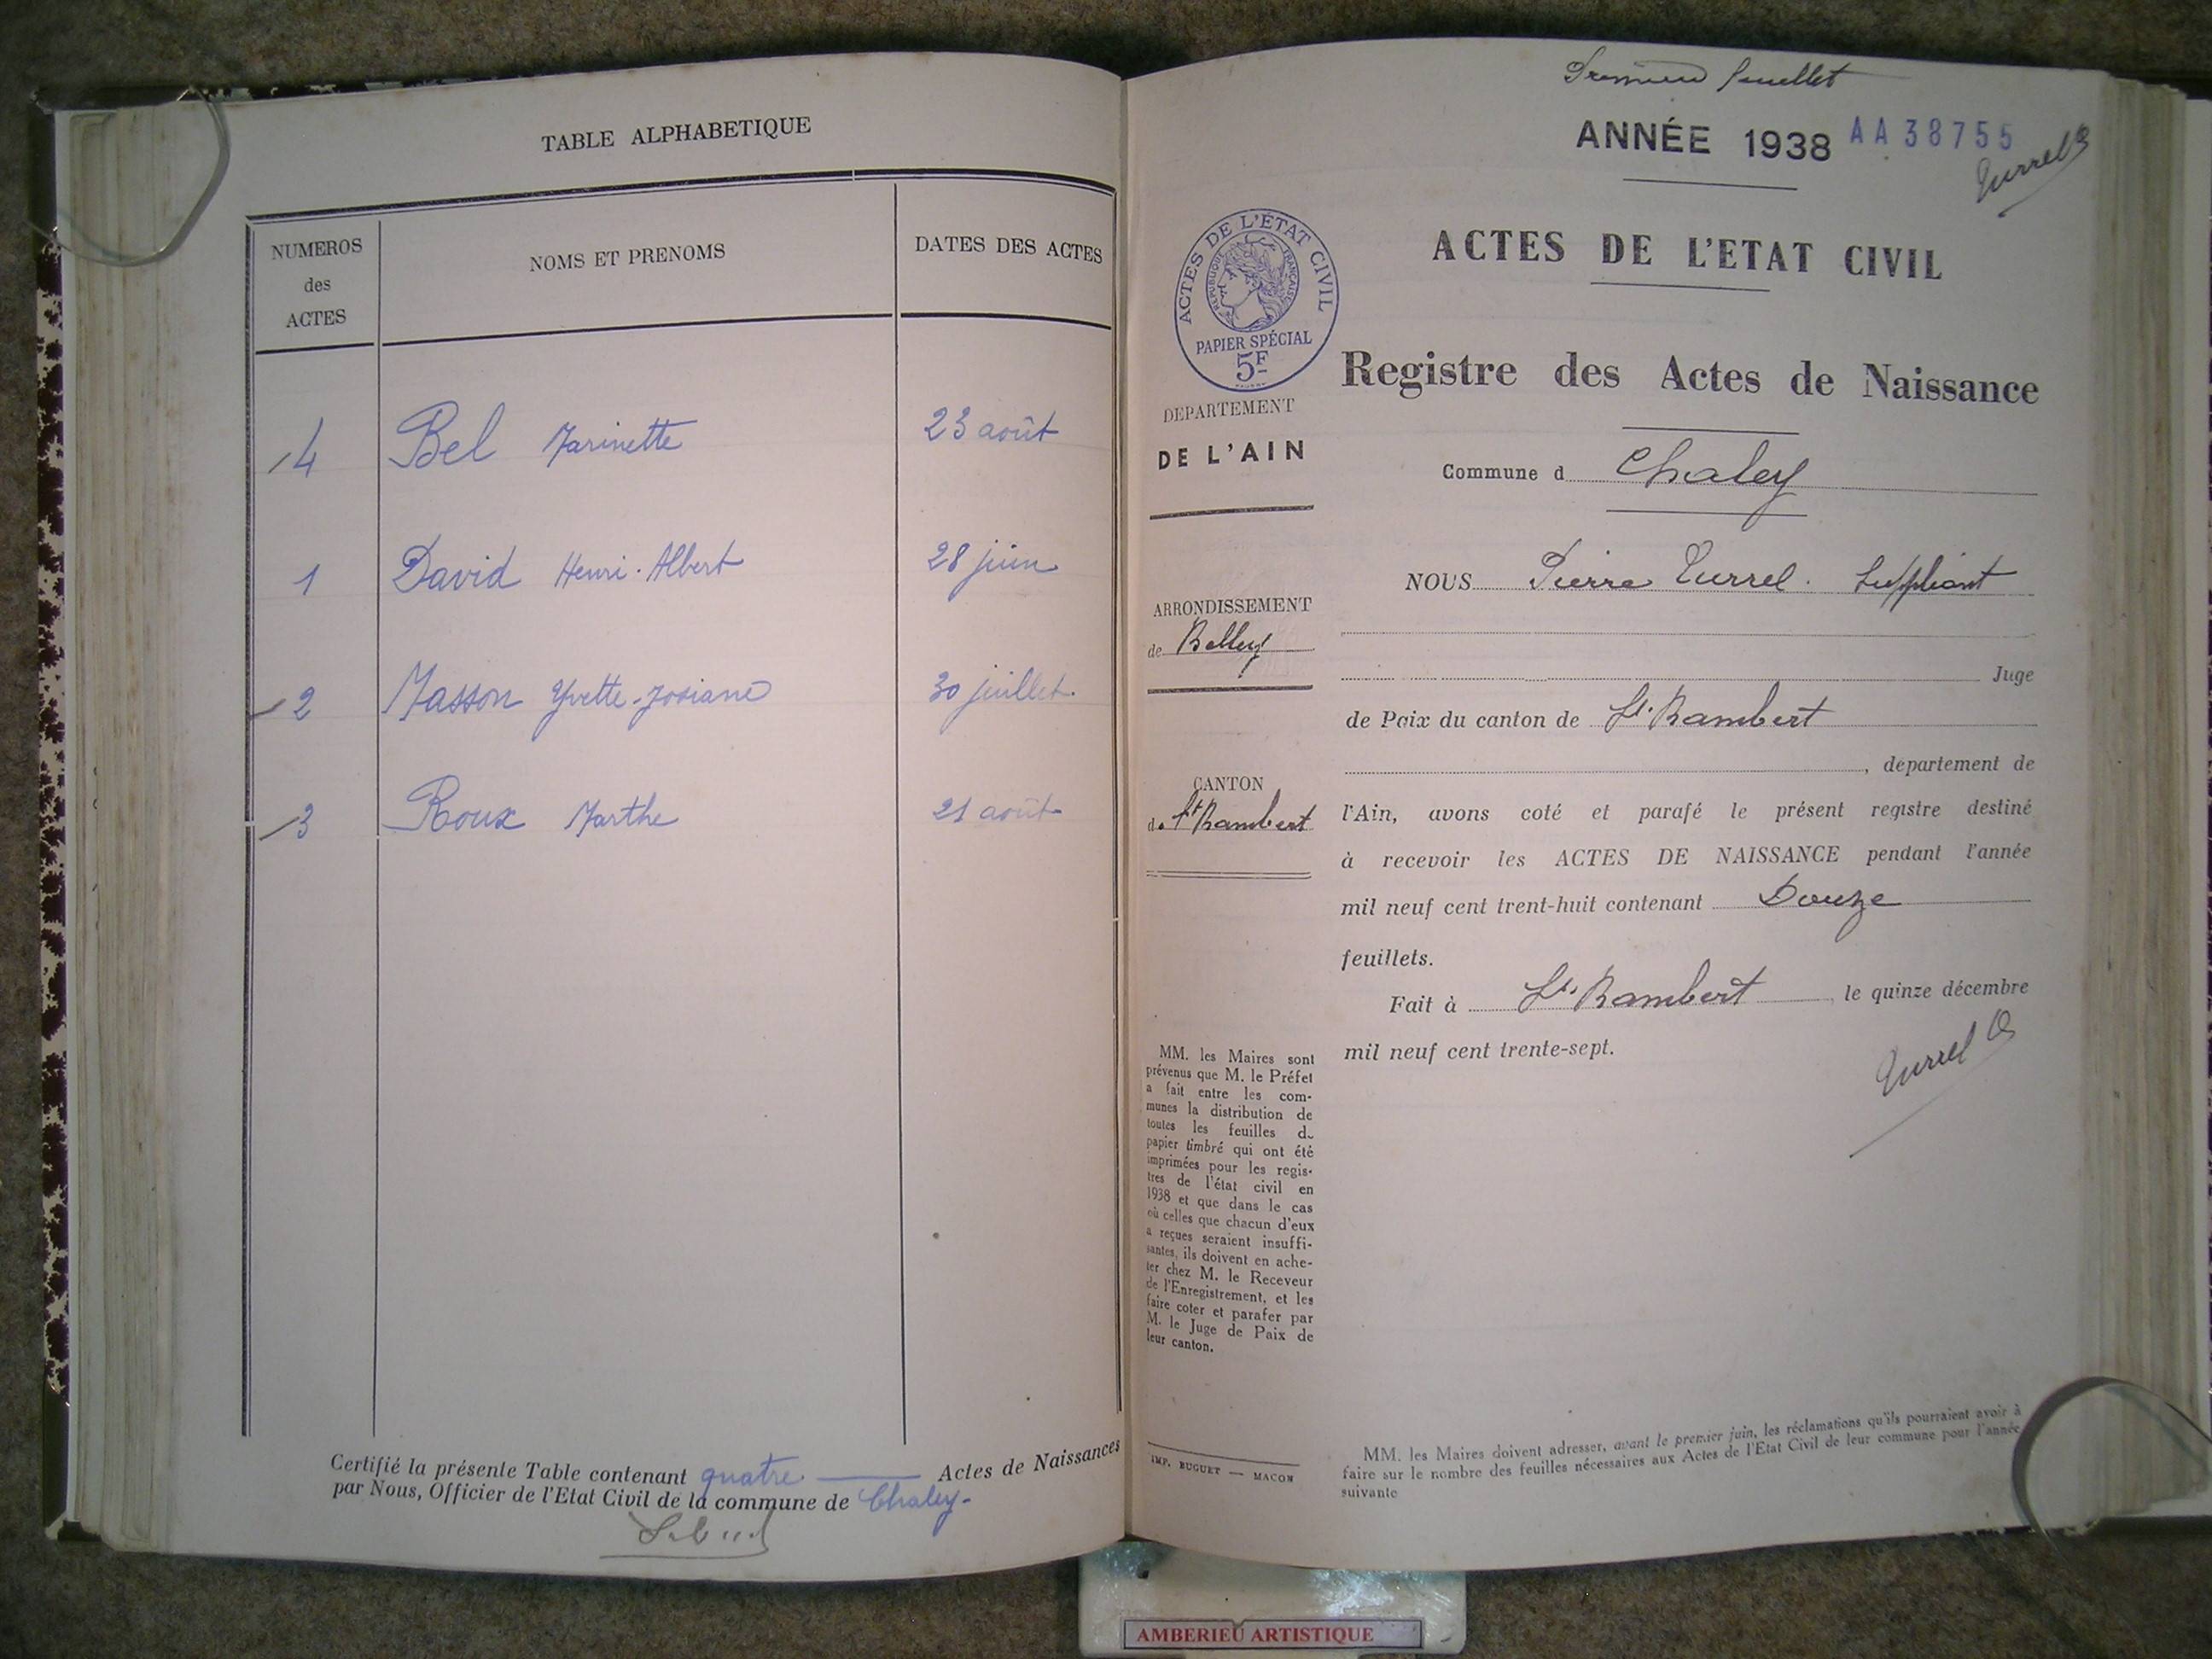 TABLE ALPHABETIQUE
NUMEROS
des
ACTES
NOMS ET PRENOMS
DATES DES ACTES
4 Bel Marinette 23 août
1 David Henri-Albert 28 juin
2 Masson Yvette-Josiane 30 juillet.
3 Roux Marthe 21 août
Certifié la présente Table contenant quatre Actes de Naissances
par Nous, Officier de l'Etat Civil de la commune de Chaley-
Premier feuillet
ANNÉE 1938 AA 38755
Turrel
ACTES DE L'ETAT CIVIL
ACTES DE L'ÉTAT CIVIL
REPUBLIQUE FRANÇAISE
PAPIER SPÉCIAL
5F
Registre des Actes de Naissance
DEPARTEMENT
DE L'AIN
Commune d Chaley
NOUS Pierre Turrel. Suppléant
ARRONDISSEMENT
de Belley
Juge
de Paix du canton de St. Rambert
, département de
CANTON
de St Rambert
l'Ain, avons coté et parafé le présent registre destiné
à recevoir les ACTES DE NAISSANCE pendant l'année
mil neuf cent trent-huit contenant Douze
feuillets.
Fait à St. Rambert, le quinze décembre
mil neuf cent trente-sept.
Turrel
MM. les Maires sont
prévenus que M. le Préfet
a fait entre les com-
munes la distribution de
toutes les feuilles de
papier timbré qui ont été
imprimées pour les regis-
tres de l'état civil en
1938 et que dans le cas
où celles que chacun d'eux
a reçues seraient insuffi-
santes, ils doivent en ache-
ter chez M. le Receveur
de l'Enregistrement, et les
faire coter et parafer par
M. le Juge de Paix de
leur canton.
IMP. BUGUET — MACON
MM. les Maires doivent adresser, avant le premier juin, les réclamations qu'ils pourraient avoir à
faire sur le nombre des feuilles nécessaires aux Actes de l'Etat Civil de leur commune pour l'année
suivante
AMBERIEU ARTISTIQUE